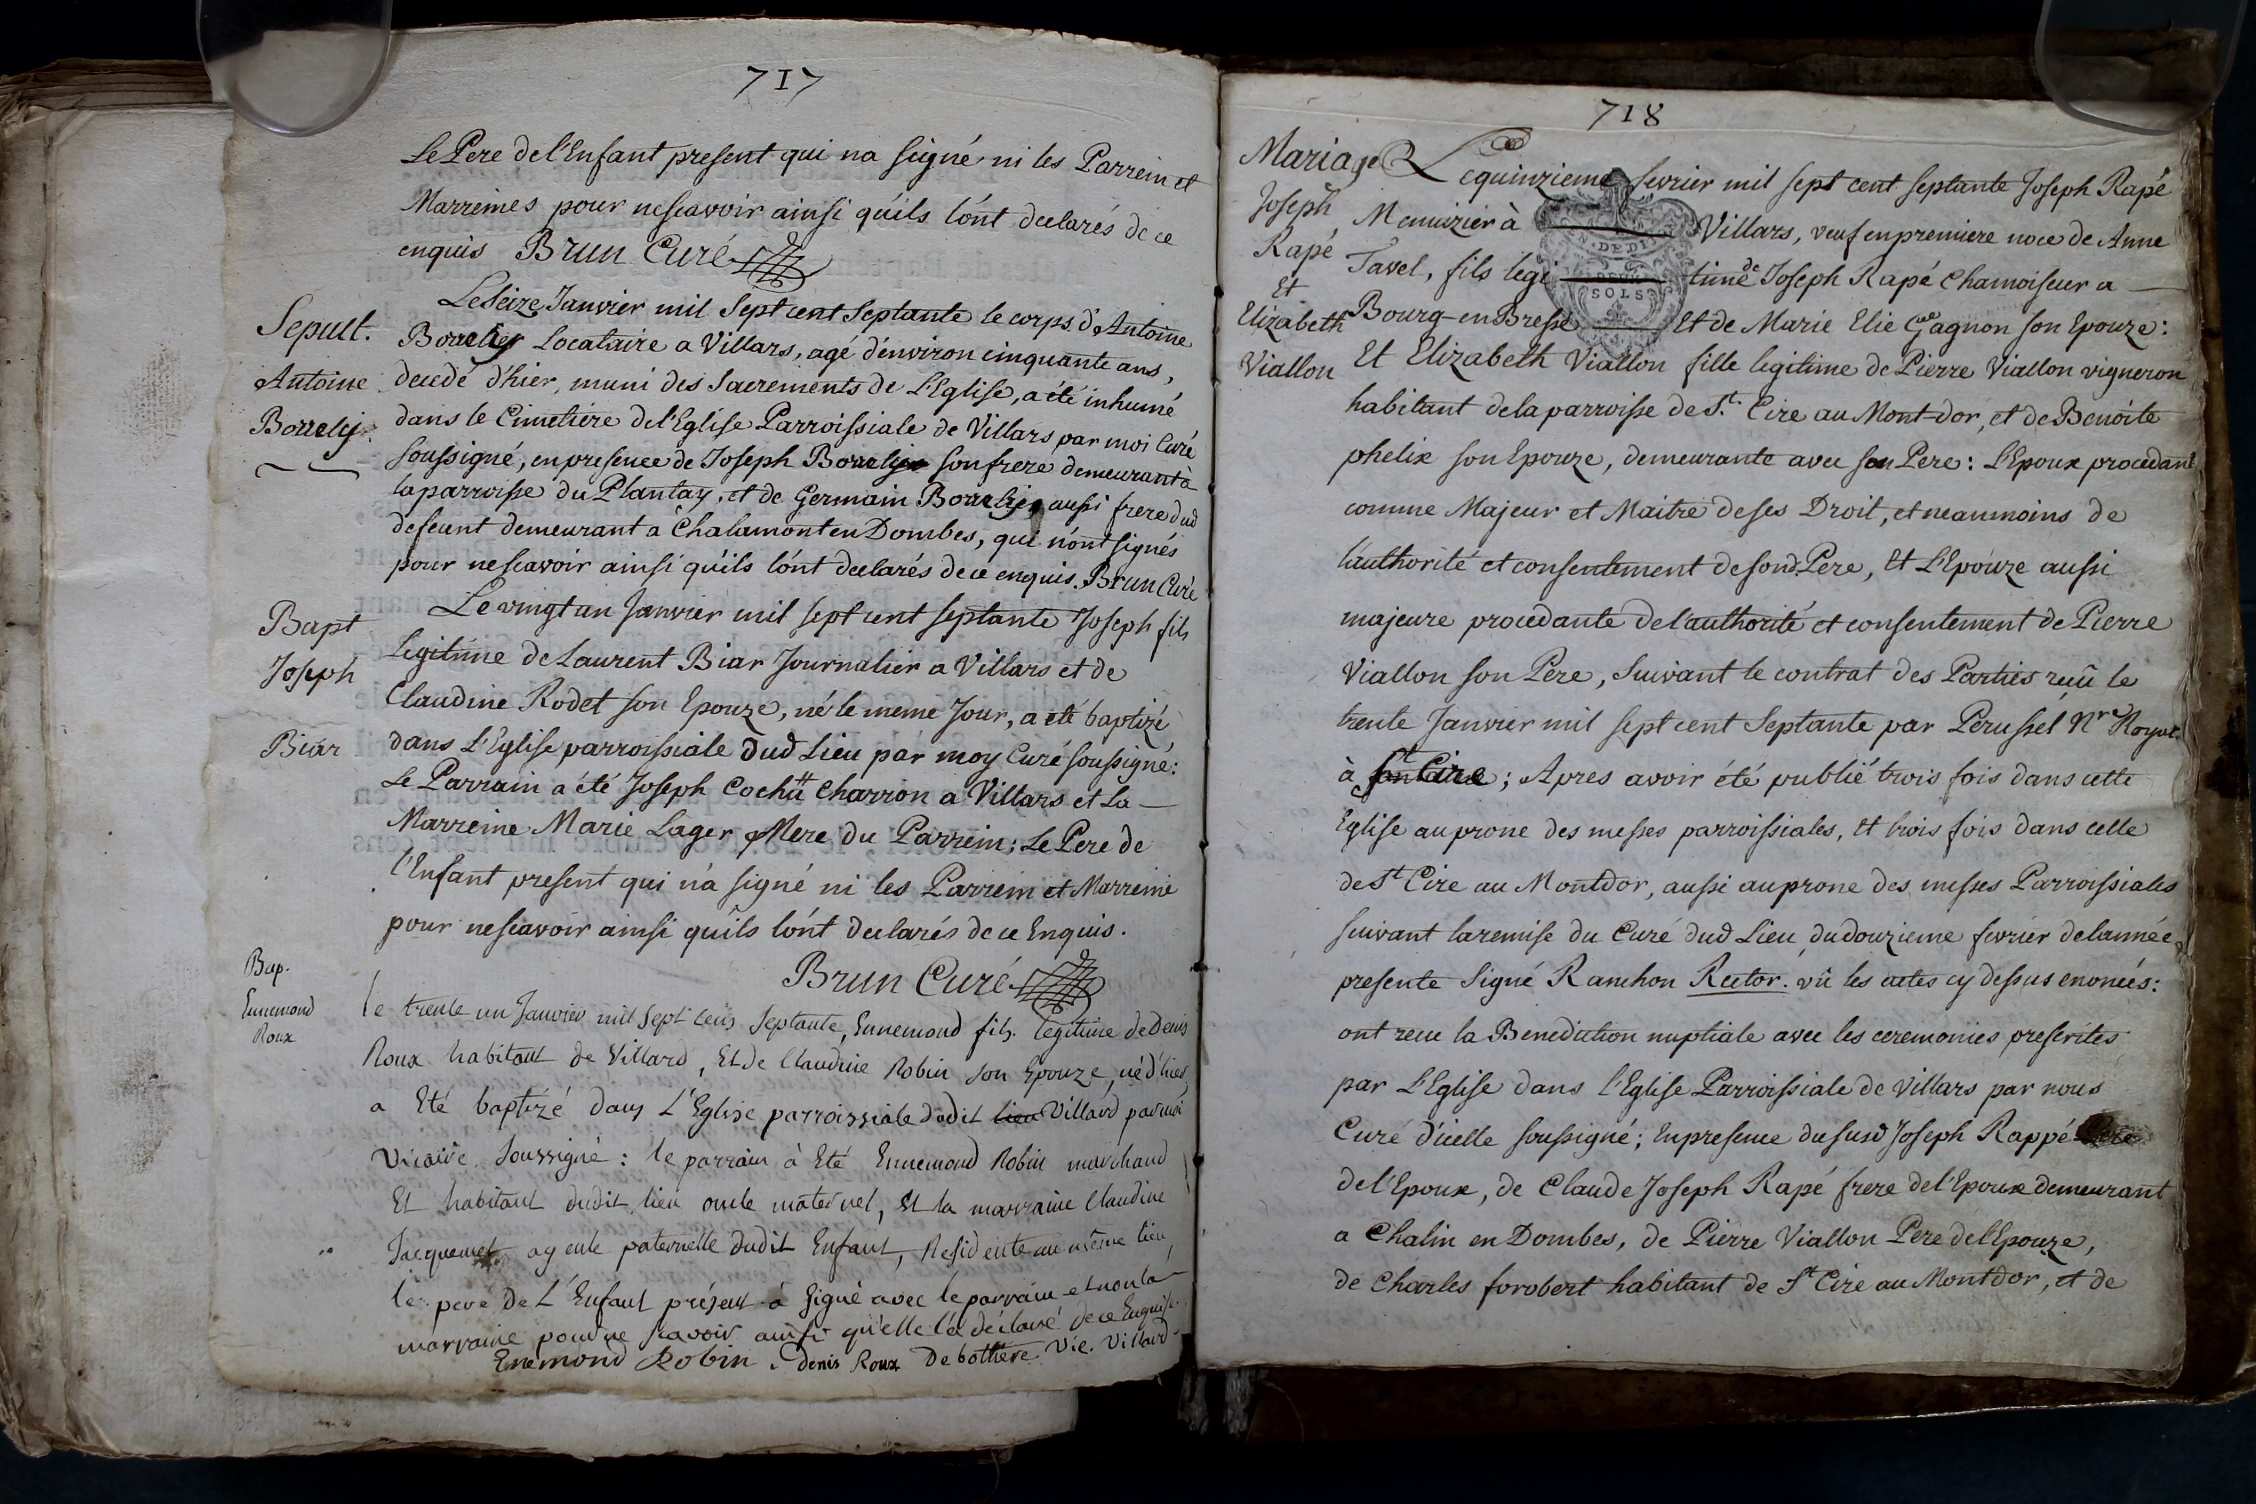 717
Le Pere de l'Enfant present qui na signé ni les Parrein et
Marreines pour nescavoir ainsi quils lónt declarés de ce
enquis Brun Curé
Sepult.
Antoine
Le seize Janvier mil sept cent septante le corps d'Antoine
Locataire a Villars, agé d'environ cinquante ans,
decedé d'hier, muni des Sacrements de L'Eglise, a été inhumé
dans le Cimetiére de l'Eglise Parroissiale de Villars par moi Curé
soussigné, en presence de Joseph son frere demeurant à
la parroisse du Plantay, et de Germain aussi frere dud
defeunt demeurant à Chalamont en Dombes, qui nónt signés
pour nescavoir ainsi quils lónt declarés de ce enquis. Brun Curé
Bapt
Joseph
Biar
Le vingt un Janvier mil sept cent septante Joseph fils
legitime de Laurent Biar Journalier a Villars et de
Claudine Rodet son Epouze, né le meme Jour, a eté baptizé
dans L'Eglise parroissiale dud Lieu par moy Curé soussigné:
Le Parrain a été Joseph Cochtt Charron a Villars et la
Marreine Marie Lager Mere du Parrein; Le Pere de
l'Enfant present qui n'a signé ni les Parrein et Marreine
pour nescavoir ainsi quils lónt declarés de ce Enquis.
Brun Curé
Bap.
Ennemond
Roux
le trente un Janvier mil sept cens septante, Ennemond fils legitime de Denis
Roux habitant de Villard, Et de Claudine Robin son Epouze, né d'hier
a Eté baptizé dans L'Eglise parroissiale dudit lieu Villard par moi
Vicaire soussigné: le parrain à Eté Ennemond Robin marchand
Et habitant dudit lieu oncle maternel, Et la marraine Claudine
Jacquemet ayeule paternelle dudit Enfant, Residente au même lieu,
le pere de L'Enfant présent à signé avec le parrain et non la
marraine pour ne scavoir ainsi qu'elle l'a déclaré de ce Enquise.
Enemond Robin Denis Roux Debottiere Vic. Villard
718
Mariage
Joseph
Rapé
Et
Elizabeth
Viallon
Le quinzieme fevrier mil sept cent septante Joseph Rapé
Menuizier à Villars, veuf en premiere noce de Anne
Tavel, fils legitime de Joseph Rapé Chamoiseur a
Bourg-en Bresse Et de Marie Elie Gagnon son Epouze:
SOLS
Et Elizabeth Viallon fille legitime de Pierre Viallon vigneron
habitant dela parroisse de St. Cire au Mont-dor, et de Benoite
phelix son Epouze, demeurante avec son Pere: L'Epoux procedant
comme Majeur et Maitre de ses Droit, et neanmoins de
lauthorité et consentement de sond. Pere, Et L'Epouze aussi
majeure procedante de l'authorité et consentement de Pierre
Viallon son Pere, Suivant le contrat des Parties reçû le
trente Janvier mil sept cent Septante par Perussel Nre Royal.
à St Cire; Apres avoir été publié trois fois dans cette
Eglise au prone des messes parroissiales, Et trois fois dans celle
de St Cire au Montdor, aussi au prone des messes Parroissiales
suivant la remise du Curé dud Lieu du douzieme fevrier de lannée
presente Signé Ranchon Rector. vû les actes cy dessus enoncés:
ont recu la Benediction nuptiale avec les ceremonies prescrites
par L'Eglise dans l'Eglise Parroissiale de Villars par nous
Curé d'icelle soussigné; En presence du susd Joseph Rappé Pere
de l'Epoux, de Claude Joseph Rapé frere de l'Epoux demeurant
a Chalin en Dombes, de Pierre Viallon Pere de l'Epouze,
de Charles forobert habitant de St Cire au Montdor, et de